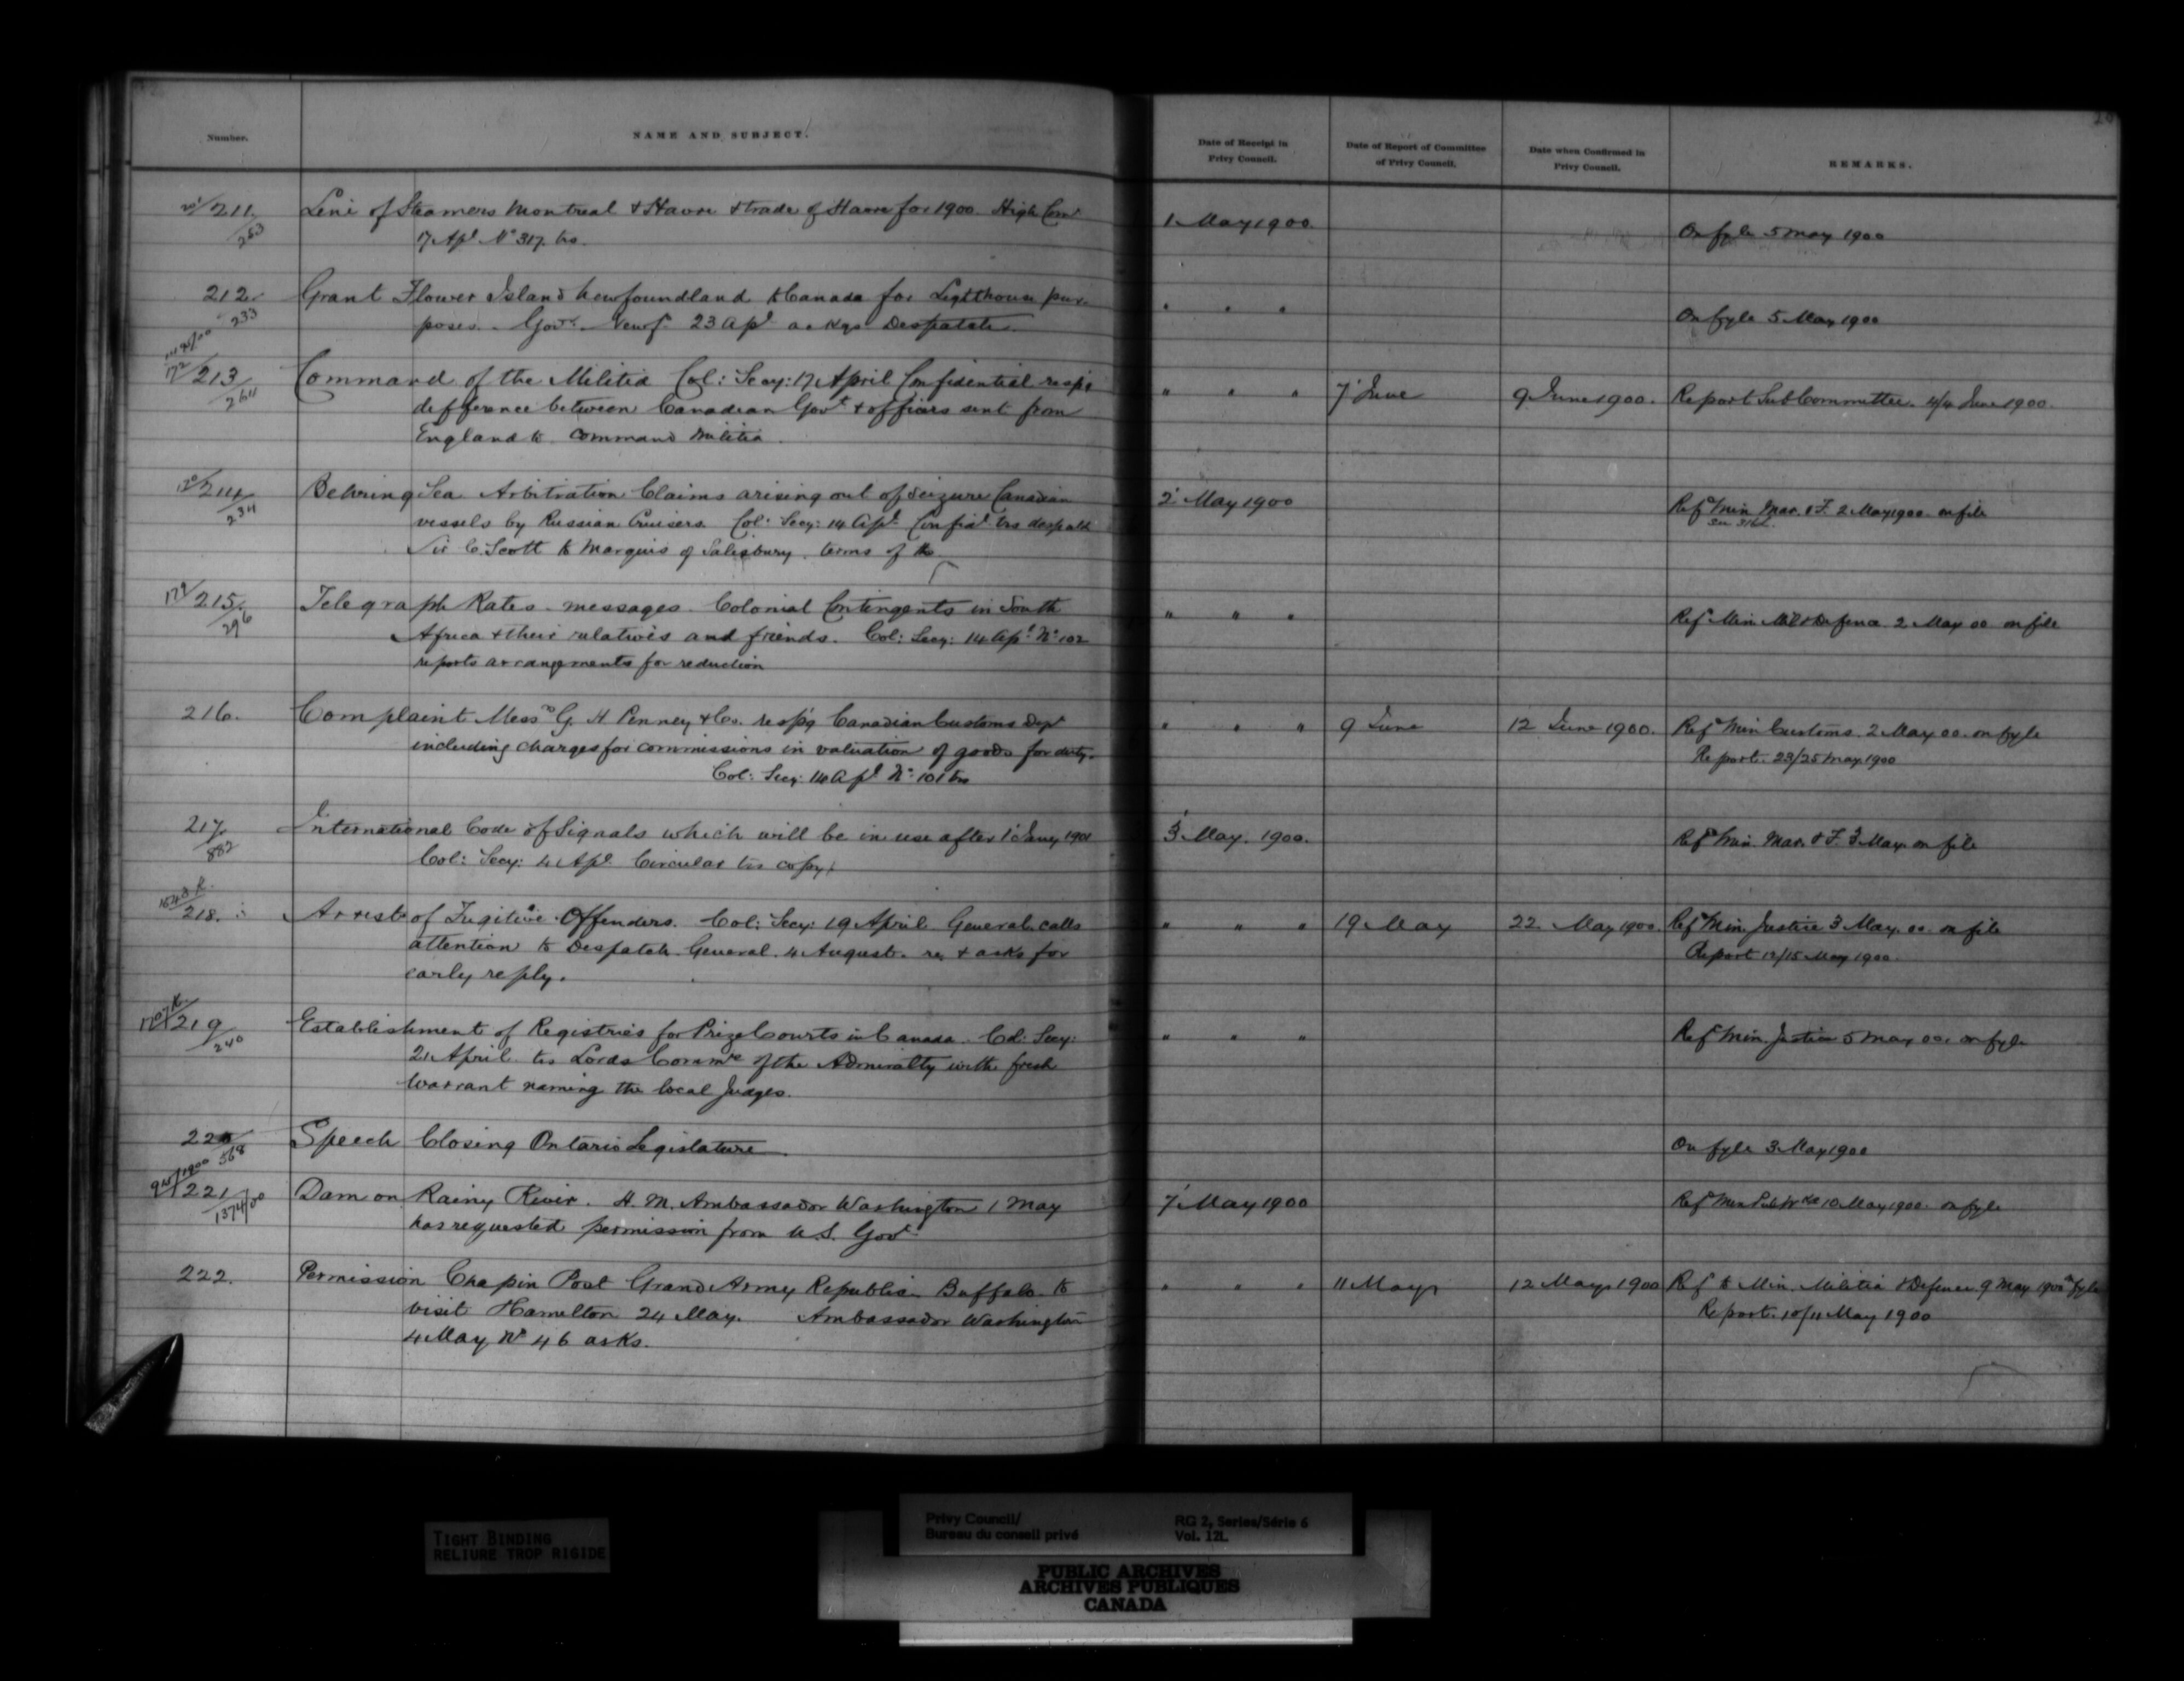 Number.
NAME AND SUBJECT.
Date of Receipt in
Privy Council.
Date of Report of Committee
of Privy Council.
Date when Confirmed in
Privy Council.
REMARKS.
211 253
Line of Steamers Montreal & Havre & trade of Havre for 1900. High Comr
17 Apl No 317 trs.
1 May 1900.
On fyle 5 May 1900
212 233
Grant Flower Island Newfoundland to Canada for Lighthouse pur-
poses. Govr. Newf. 23 Apl ackgs Despatch.
" " "
On fyle 5 May 1900
172 213 264
Command of the Militia Col: Secy: 17 April Confidential respg
difference between Canadian Govt & officers sent from
England to command militia.
" " "
7 June
9 June 1900.
Report SubCommittee. 4/4 June 1900.
214 234
Behring Sea Arbitration Claims arising out of seizure Canadian
vessels by Russian Cruisers. Col: Secy: 14 Apl. Confidl trs despatch
Sir C. Scott to Marquis of Salisbury. terms of
2 May 1900
Refd Min Mar. & F. 2 May 1900. on file
215 296
Telegraph Rates messages Colonial Contingents in South
Africa & their relatives and friends. Col: Secy: 14 Apl No 102
reports arrangements for reduction
" " "
Refd Min Mil & Defence 2 May 00 on file
216.
Complaint Messrs G. H. Penney & Co. respg Canadian Customs Dept
including charges for commissions in valuation of goods for duty.
Col: Secy: 14 Apl No 101 trs
" " "
9 June
12 June 1900.
Refd Min Customs. 2 May 00. on fyle
Report. 23/25 May 1900
217 882
International Code of Signals which will be in use after 1 Jany 1901
Col: Secy: 4 Apl. Circular trs copy.
3 May. 1900.
Refd Min. Mar. & F. 3 May. on file
218.
Arrest of Fugitive Offenders. Col: Secy: 19 April General calls
attention to Despatch General. 4 August. re & asks for
early reply.
" " "
19 May
22 May 1900.
Refd Min. Justice 3 May. 00. on file
Report 12/15 May 1900.
219 240
Establishment of Registries for Prize Courts in Canada. Col: Secy:
21 April trs Lords Commrs of the Admiralty with fresh
Warrant naming the local Judges.
" " "
Refd Min. Justice 5 May 00. on fyle
220 568
Speech Closing Ontario Legislature.
On fyle 3 May 1900
221 1374/00
Dam on Rainy River. H. M. Ambassador Washington 1 May
has requested permission from U.S. Govt
7 May 1900
Refd Min Pub Wks 10 May 1900. on fyle
222.
Permission Chapin Post Grand Army Republic Buffalo to
visit Hamilton 24 May. Ambassador Washington
4 May No 46 asks.
" " "
11 May
12 May 1900
Refd to Min. Militia & Defence 9 May 1900 on fyle
Report. 10/11 May 1900
TIGHT BINDING
RELIURE TROP RIGIDE
Privy Council/
Bureau du conseil privé
RG 2, Series/Série 6
Vol. 121
PUBLIC ARCHIVES
ARCHIVES PUBLIQUES
CANADA